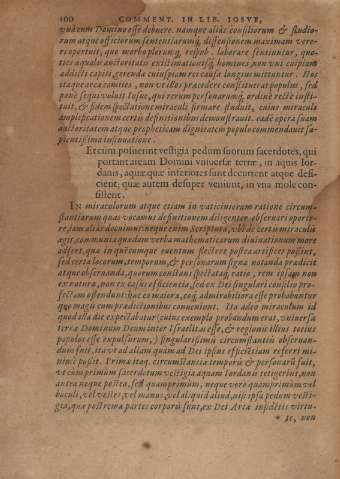 100 COMMENT. IN LIB. IOSVE,
vnà cum Domino esse debuere. namque aliàs consiliorum & studio-
rum atque officiorum sententiarumq́; dissensionem maximam vere-
ri oportuit, quo morbo plerunq́; respub. laborare sentiuntur, quo-
ties aquale auctoritatis existimationisq́; homines non vni cuipiam
addicti capiti, gerenda cuiuspiam rei causa longius mittuntur. Hos
itaque arca comites, non vt illos praecedere constituerat populus, sed
ponè sequi voluit Iosue, quo rerum personarumq́; ordine rectè insti-
tuit, & fidem spectatione miraculi firmare studuit, cuius miraculi
amplificationem certis definitionibus demonstrauit. eadé opera suam
auctoritatem atque propheticam dignitatem populo commendauit sa-
pientissima insinuatione.
Et cùm posuerint vestigia pedum suorum sacerdotes, qui
portant arcam Domini vniuersæ terræ, in aquis Ior-
danis, aquæ quæ inferiores sunt decurrent atque defi-
cient; quæ autem desuper veniunt, in vna mole con-
sistent.
IN miraculorum atque etiam in vaticiniorum ratione circum-
stantiarum quas vocamus definitionem diligenter obseruari oporte-
re, iam aliàs docuimus: neque enim Scriptura, vbi de certis miraculis
agit, communia quædam verba mathematicorum diuinationum more
adfert, qua in quicumque euentum flectere postea artifices possint,
sed certa locorum, temporum, & personarum signa notanda prædicit
atque obseruanda, quorum constans spectataq́; ratio, rem ipsam non
ex natura, non ex casus efficientia, sed ex Dei singulari consilio pro-
fectam ostendunt: hoc ea maiora, eoq́; admirabiliora esse probantur
quo magis cum prædictionibus conueniunt. Ita adeo miraculum id
quod illa die expectabatur (cuius exemplo probandum erat, vniuersæ
terræ Dominum Deum inter Israelitas esse, & regionis illius totius
populos esse expulsurum,) singularissimis circumstantiis obseruan-
dum fuit, ita vt ad alium quàm ad Dei ipsius efficientiam referri mi-
nimè possit. Prima itaq́; circumstantia temporis & personarum fuit,
vt cùm primùm sacerdotum vestigia aquam Iordanis tetigerint, non
antea neque postea, sed quamprimùm, neque verò quamprimùm vel
baculi, vel vestes, vel manus, vel aliquid aliud, nisi ipsa pedum vesti-
gia, quæ postrema partes corporis sunt, ex Dei Arcæ impactis virtu-
te, non